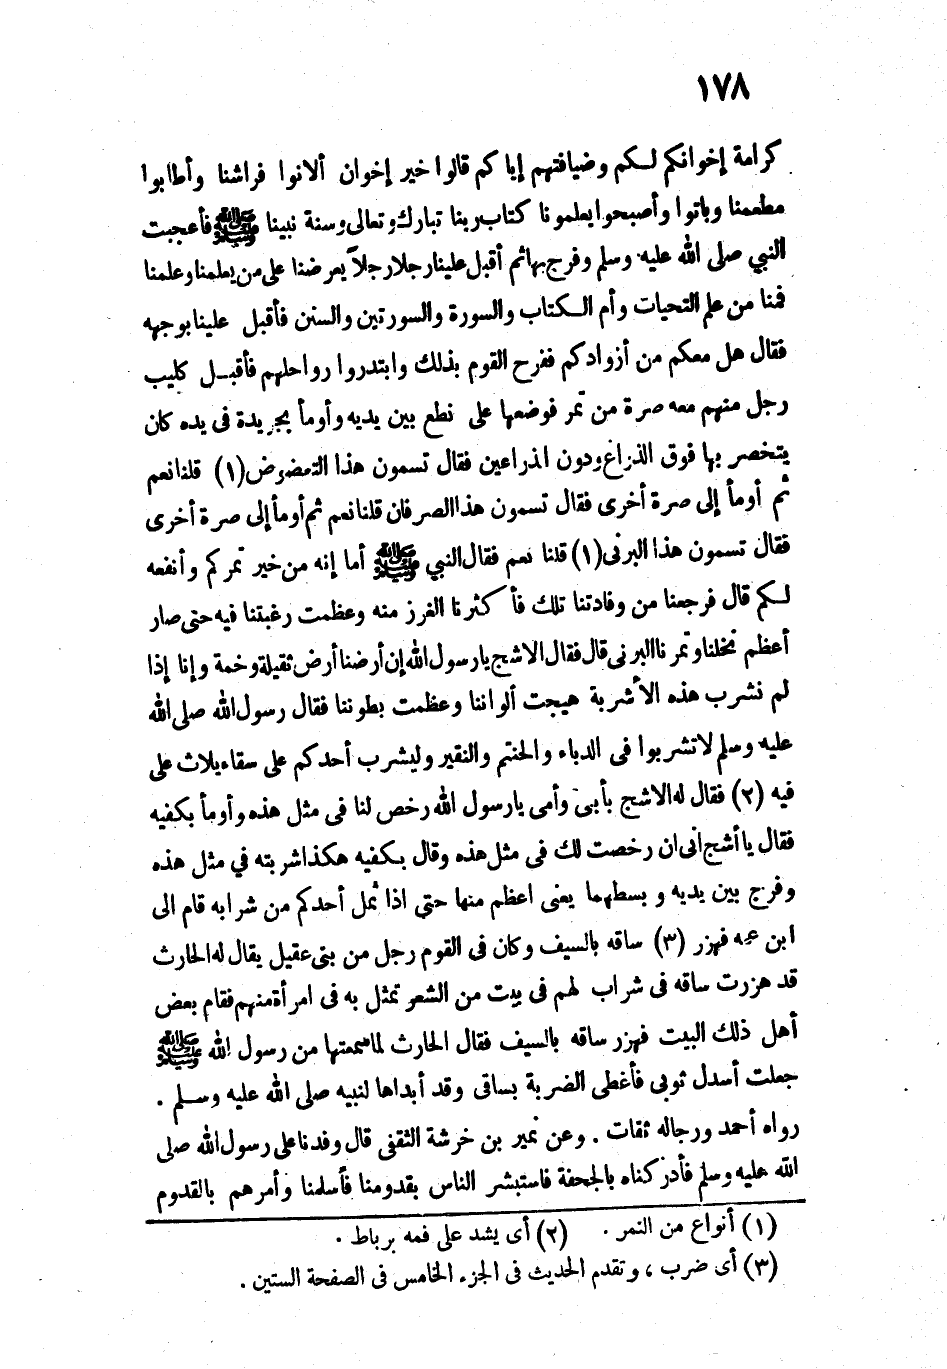 ١٧٨
كرامة إخوانكم لكم وضيافتهم إياكم قالوا خير إخوان ألانوا فراشنا وأطابوا
مطعمنا وباتوا وأصبحوا يعلمونا كتاب ربنا تبارك وتعالى وسنة نبينا ﷺ فأعجبت
النبي صلى الله عليه وسلم وفرح بها ثم أقبل علينا رجلا رجلاً يعرضنا على من يعلمنا وعلمنا
فمنا من علم التحيات وأم الكتاب والسورة والسورتين والسنن فأقبل علينا بوجهه
فقال هل معكم من أزوادكم ففرح القوم بذلك وابتدروا رواحلهم فأقبل كليب
رجل منهم معه صرة من تمر فوضعها على نطع بين يديه وأومأ بجريدة فى يده كان
يتخصر بها فوق الذراع ودون الذراعين فقال تسمون هذا التعضوض (١) قلنا نعم
ثم أومأ إلى صرة أخرى فقال تسمون هذا الصرفان قلنا نعم ثم أومأ إلى صرة أخرى
فقال تسمون هذا البرنى (١) قلنا نعم فقال النبي ﷺ أما إنه من خير تمركم وأنفعه
لكم قال فرجعنا من وفادتنا تلك فأكثرنا الغرز منه وعظمت رغبتنا فيه حتى صار
أعظم نخلنا وتمرنا البرنى قال فقال الاشج يا رسول الله إن أرضنا أرض ثقيلة وخمة وإنا إذا
لم نشرب هذه الأشربة هيجت ألواننا وعظمت بطوننا فقال رسول الله صلى الله
عليه وسلم لاتشربوا فى الدباء والحنتم والنقير وليشرب أحدكم على سقاء يلاث على
فيه (٢) فقال له الاشج بأبى وأمى يارسول الله رخص لنا فى مثل هذه وأومأ بكفيه
فقال يا أشج انى ان رخصت لك فى مثل هذه وقال بكفيه هكذا شربته في مثل هذه
وفرج بين يديه وبسطهما يعنى اعظم منها حتى اذا ثمل أحدكم من شرابه قام الى
ابن عمه فهزر (٣) ساقه بالسيف وكان فى القوم رجل من بنى عقيل يقال له الحارث
قد هزرت ساقه فى شراب لهم فى بيت من الشعر تمثل به فى امرأة منهم فقام بعض
أهل ذلك البيت فهزر ساقه بالسيف فقال الحارث لما سمعتها من رسول الله ﷺ
جعلت أسدل ثوبى فأغطى الضربة بساقى وقد أبداها لنبيه صلى الله عليه وسلم .
رواه أحمد ورجاله ثقات . وعن نمير بن خرشة الثقفى قال وفدنا على رسول الله صلى
الله عليه وسلم فأدركناه بالجحفة فاستبشر الناس بقدومنا فأسلمنا وأمرهم بالقدوم
(١) أنواع من التمر . (٢) أى يشد على فمه برباط .
(٣) أى ضرب ، وتقدم الحديث فى الجزء الخامس فى الصفحة الستين .